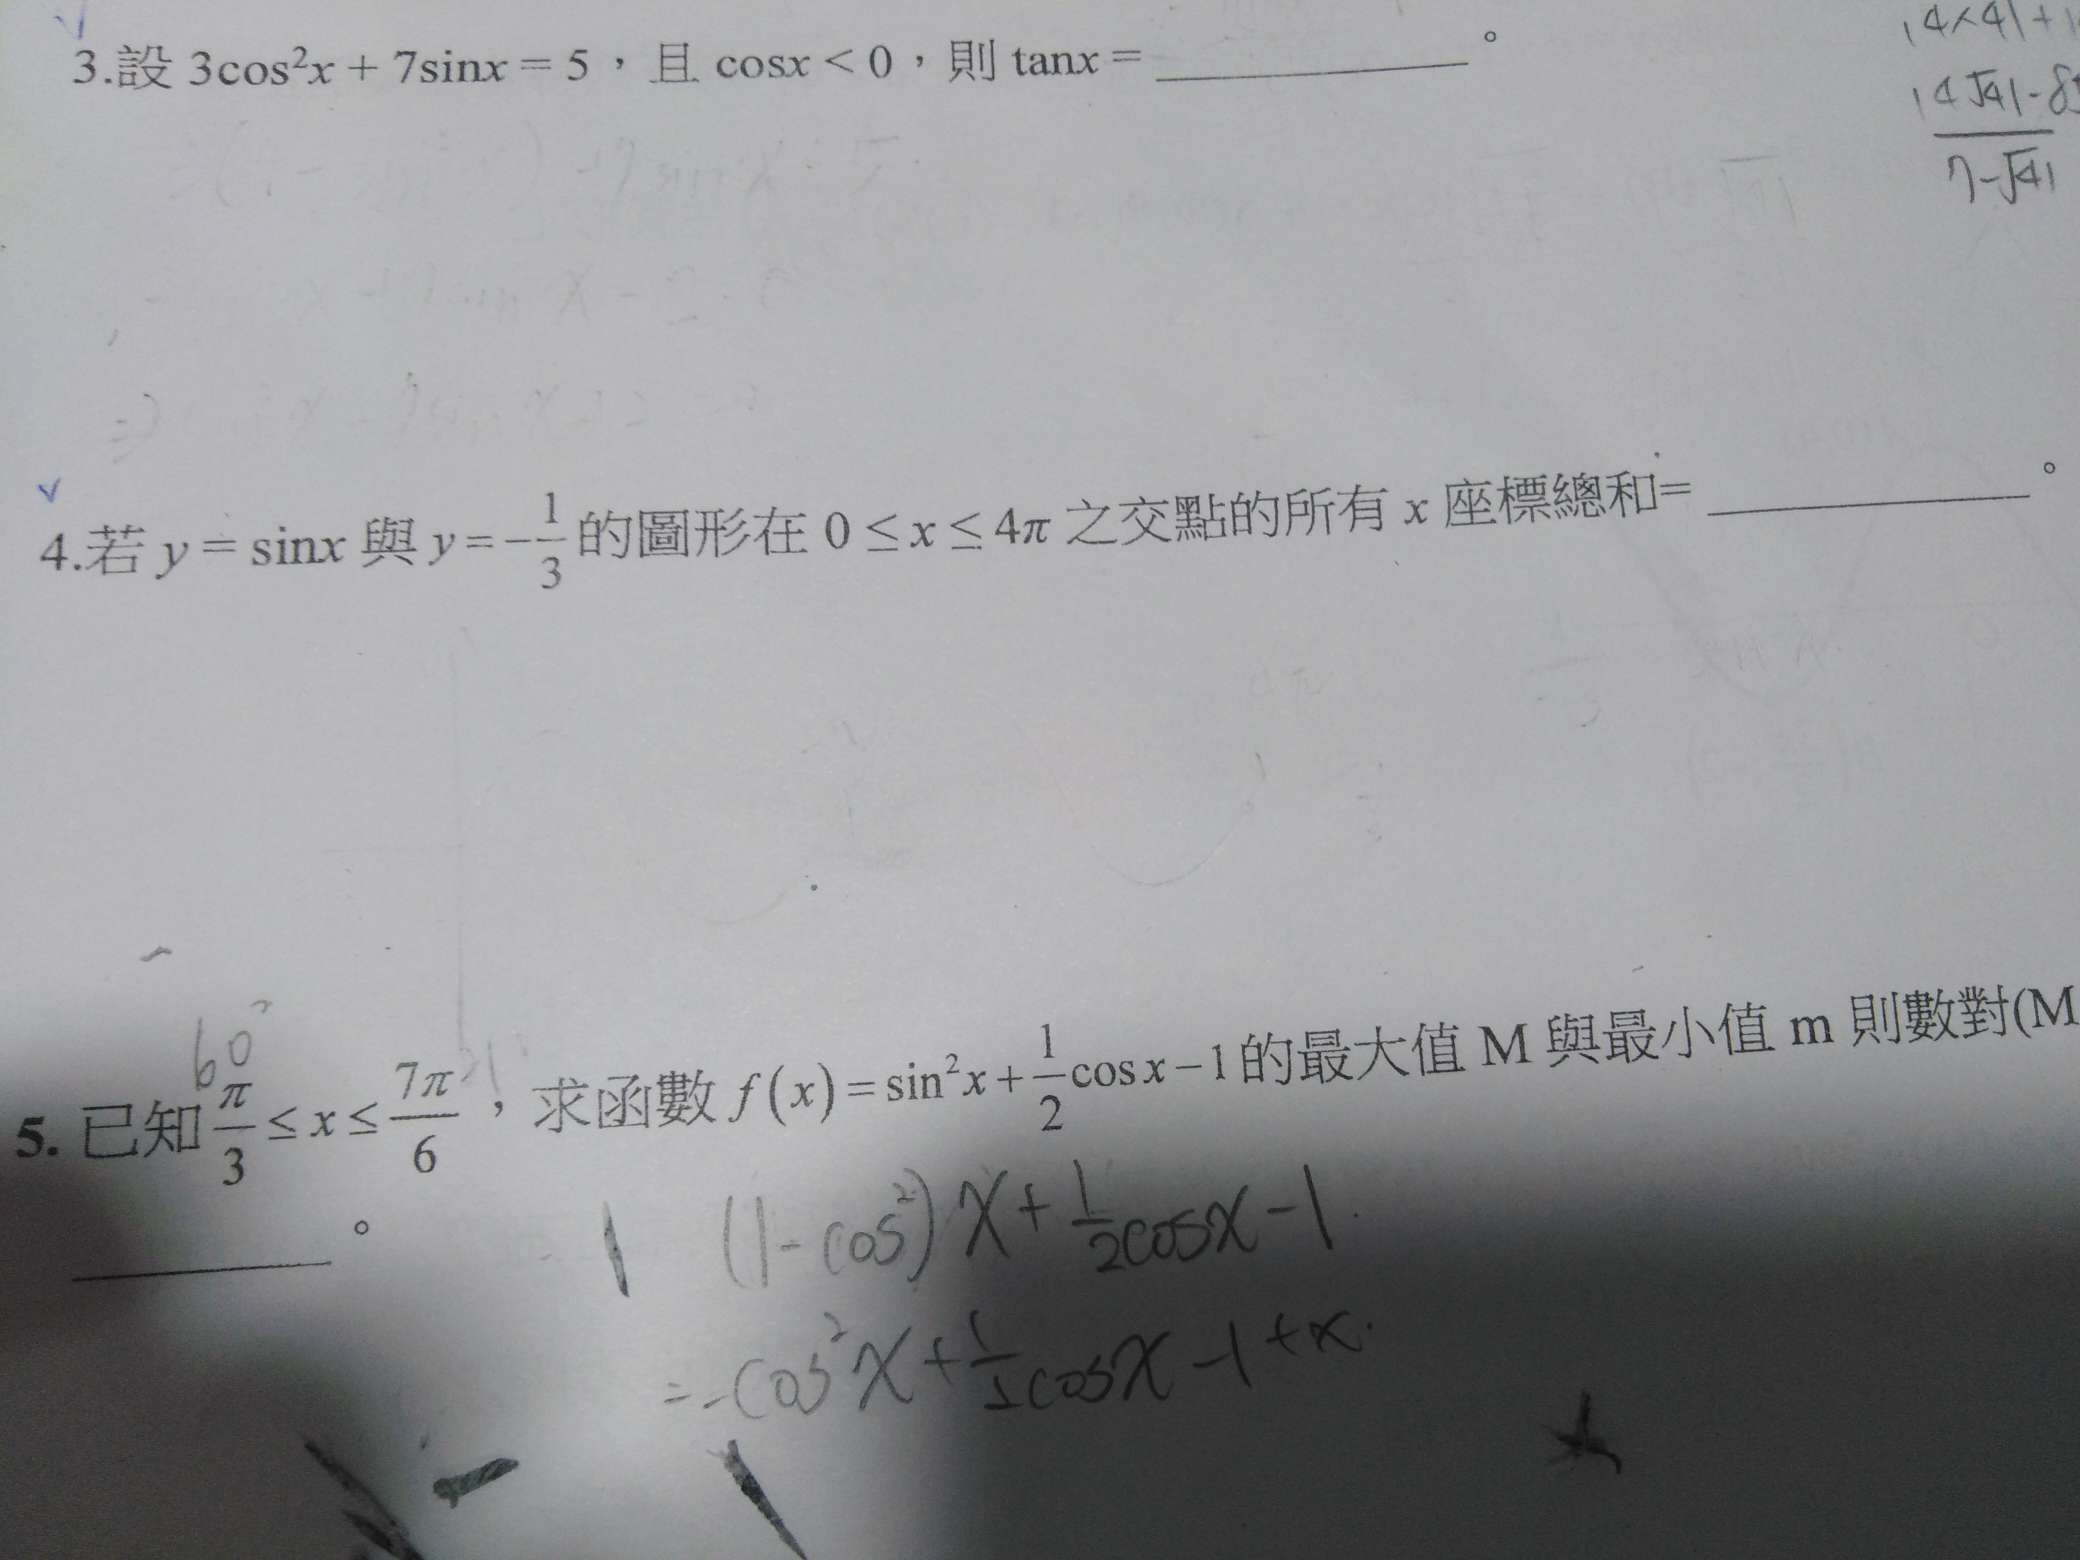 14×41+
3.設 3cos²x + 7sinx = 5,且 cosx < 0,則 tanx = ________。
14√41-8
7-√41
4.若 y = sinx 與 y = -1/3 的圖形在 0 ≤ x ≤ 4π 之交點的所有 x 座標總和= ________。
60°
5. 已知 π/3 ≤ x ≤ 7π/6,求函數 f(x) = sin²x + 1/2 cosx - 1 的最大值 M 與最小值 m 則數對(M
________。
(1-cos²)x + 1/2 cosx - 1
= -cos²x + 1/2 cosx - 1 + x